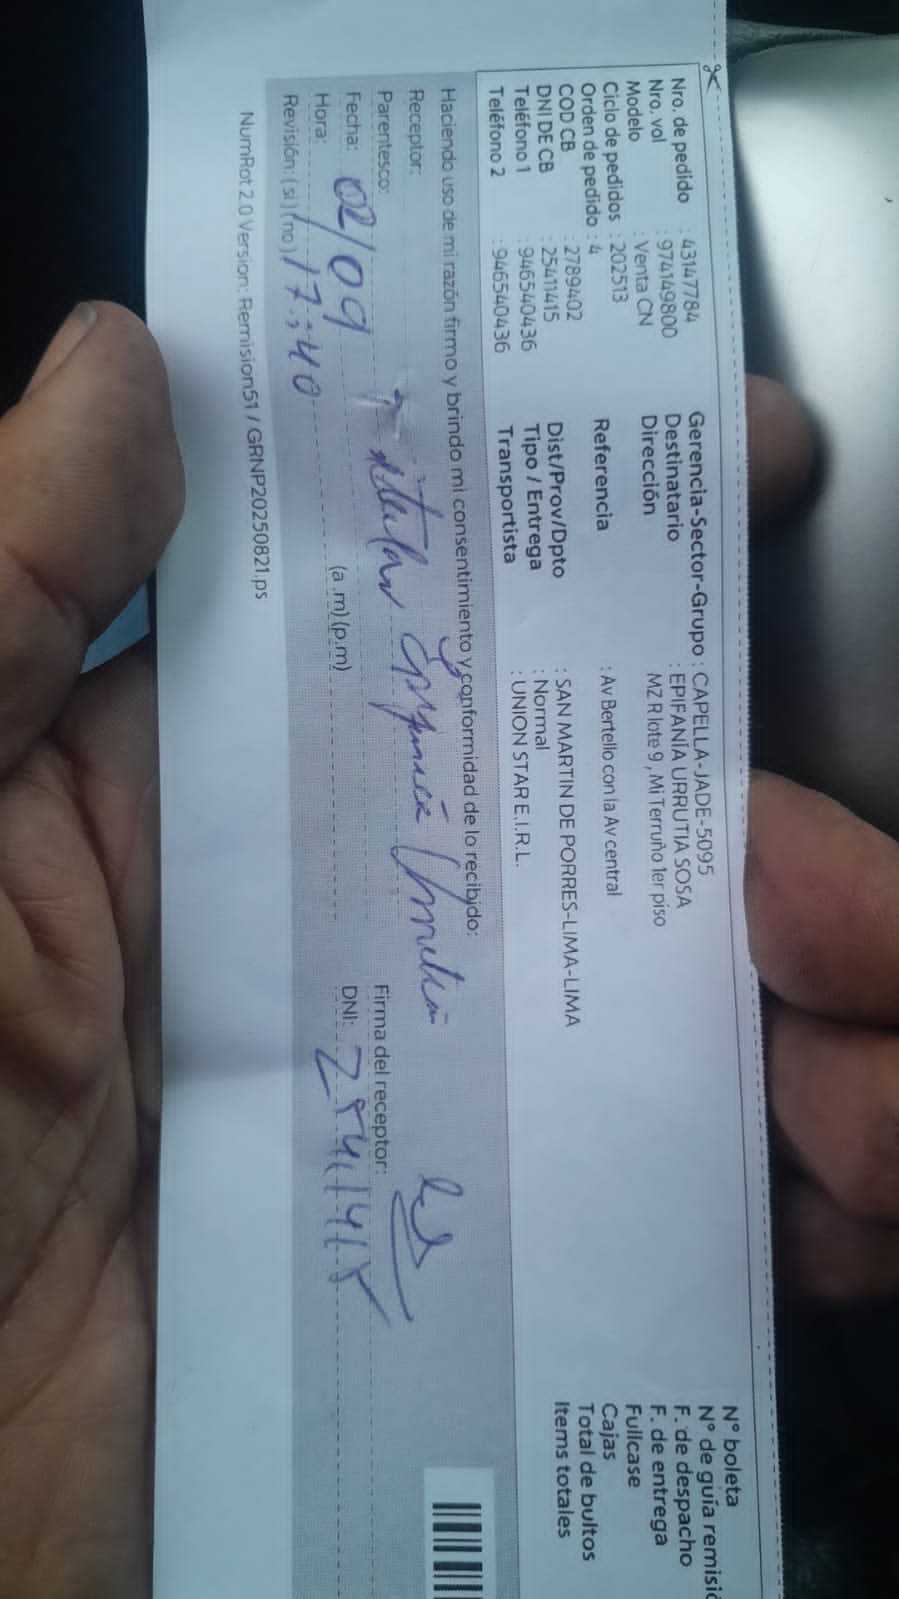 Nro. de pedido : 43147784
Nro. vol : 974149800
Modelo : Venta CN
Ciclo de pedidos : 202513
Orden de pedido : 4
COD CB : 2789402
DNI DE CB : 25411415
Teléfono 1 : 946540436
Teléfono 2 : 946540436
Gerencia-Sector-Grupo : CAPELLA-JADE-5095
Destinatario : EPIFANÍA URRUTIA SOSA
Dirección MZ R lote 9 , Mi Terruño 1er piso
Referencia : Av Bertello con la Av central
Dist/Prov/Dpto : SAN MARTIN DE PORRES-LIMA-LIMA
Tipo / Entrega : Normal
Transportista : UNION STAR E.I.R.L.
N° boleta
N° de guía remisió
F. de despacho
F. de entrega
Fullcase
Cajas
Total de bultos
Items totales
Haciendo uso de mi razón firmo y brindo mi consentimiento y conformidad de lo recibido:
Receptor: Urrutia
Parentesco: titular
Firma del receptor:
Fecha: 02/09
DNI: 25411415
Hora: 17:40 (a.m) (p.m)
Revisión: ( si ) ( no )
NumRot 2.0 Version: Remision51 / GRNP20250821.ps